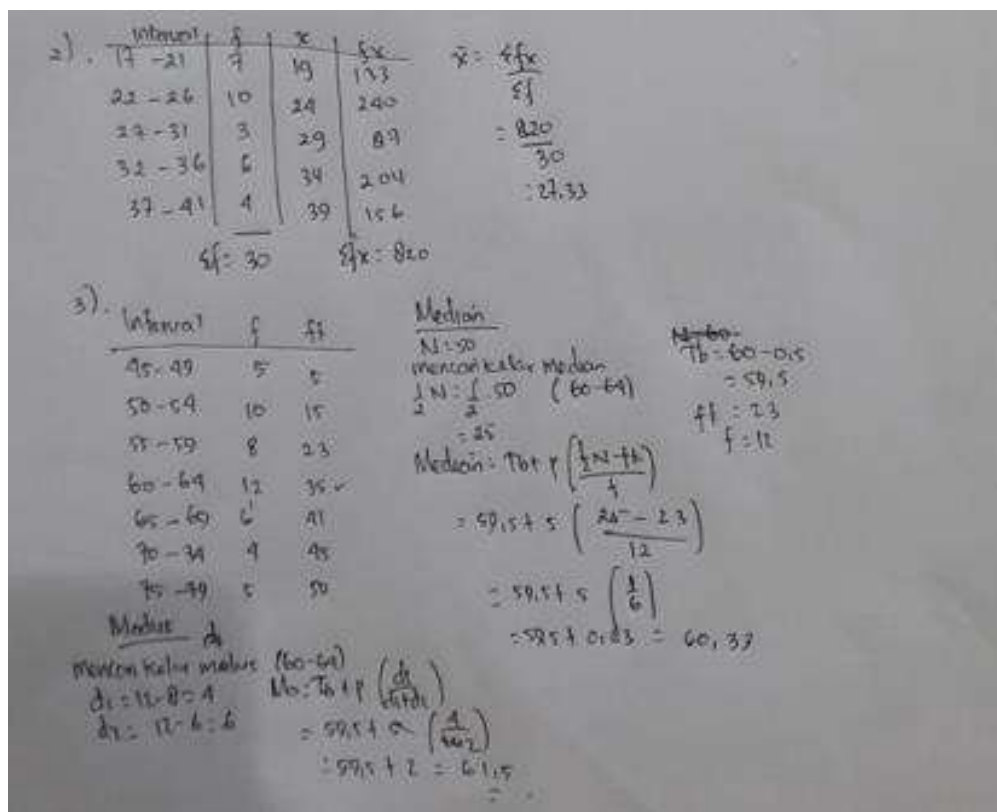 2). Interval f x fx
17 - 21 7 19 133
22 - 26 10 24 240
27 - 31 3 29 87
32 - 36 6 34 204
37 - 41 4 39 156
Σf = 30 Σfx = 820
x̄ = Σfx / Σf
= 820 / 30
= 27,33
3). Interval f fk
45 - 49 5 5
50 - 54 10 15
55 - 59 8 23
60 - 64 12 35 ✓
65 - 69 6 41
70 - 74 4 45
75 - 79 5 50
Median
N = 50
mencari kelas median
1/2 N = 1/2 50 (60-64)
= 25
Tb = 60 - 0,5
= 59,5
fk = 23
f = 12
Median = Tb + p (1/2 N - fk / f)
= 59,5 + 5 (25 - 23 / 12)
= 59,5 + 5 (1/6)
= 59,5 + 0,83 = 60,33
Modus
mencari kelas modus (60-64)
d₁ = 12 - 8 = 4
d₂ = 12 - 6 = 6
Mo = Tb + p (d₁ / d₁+d₂)
= 59,5 + 2 = 61,5